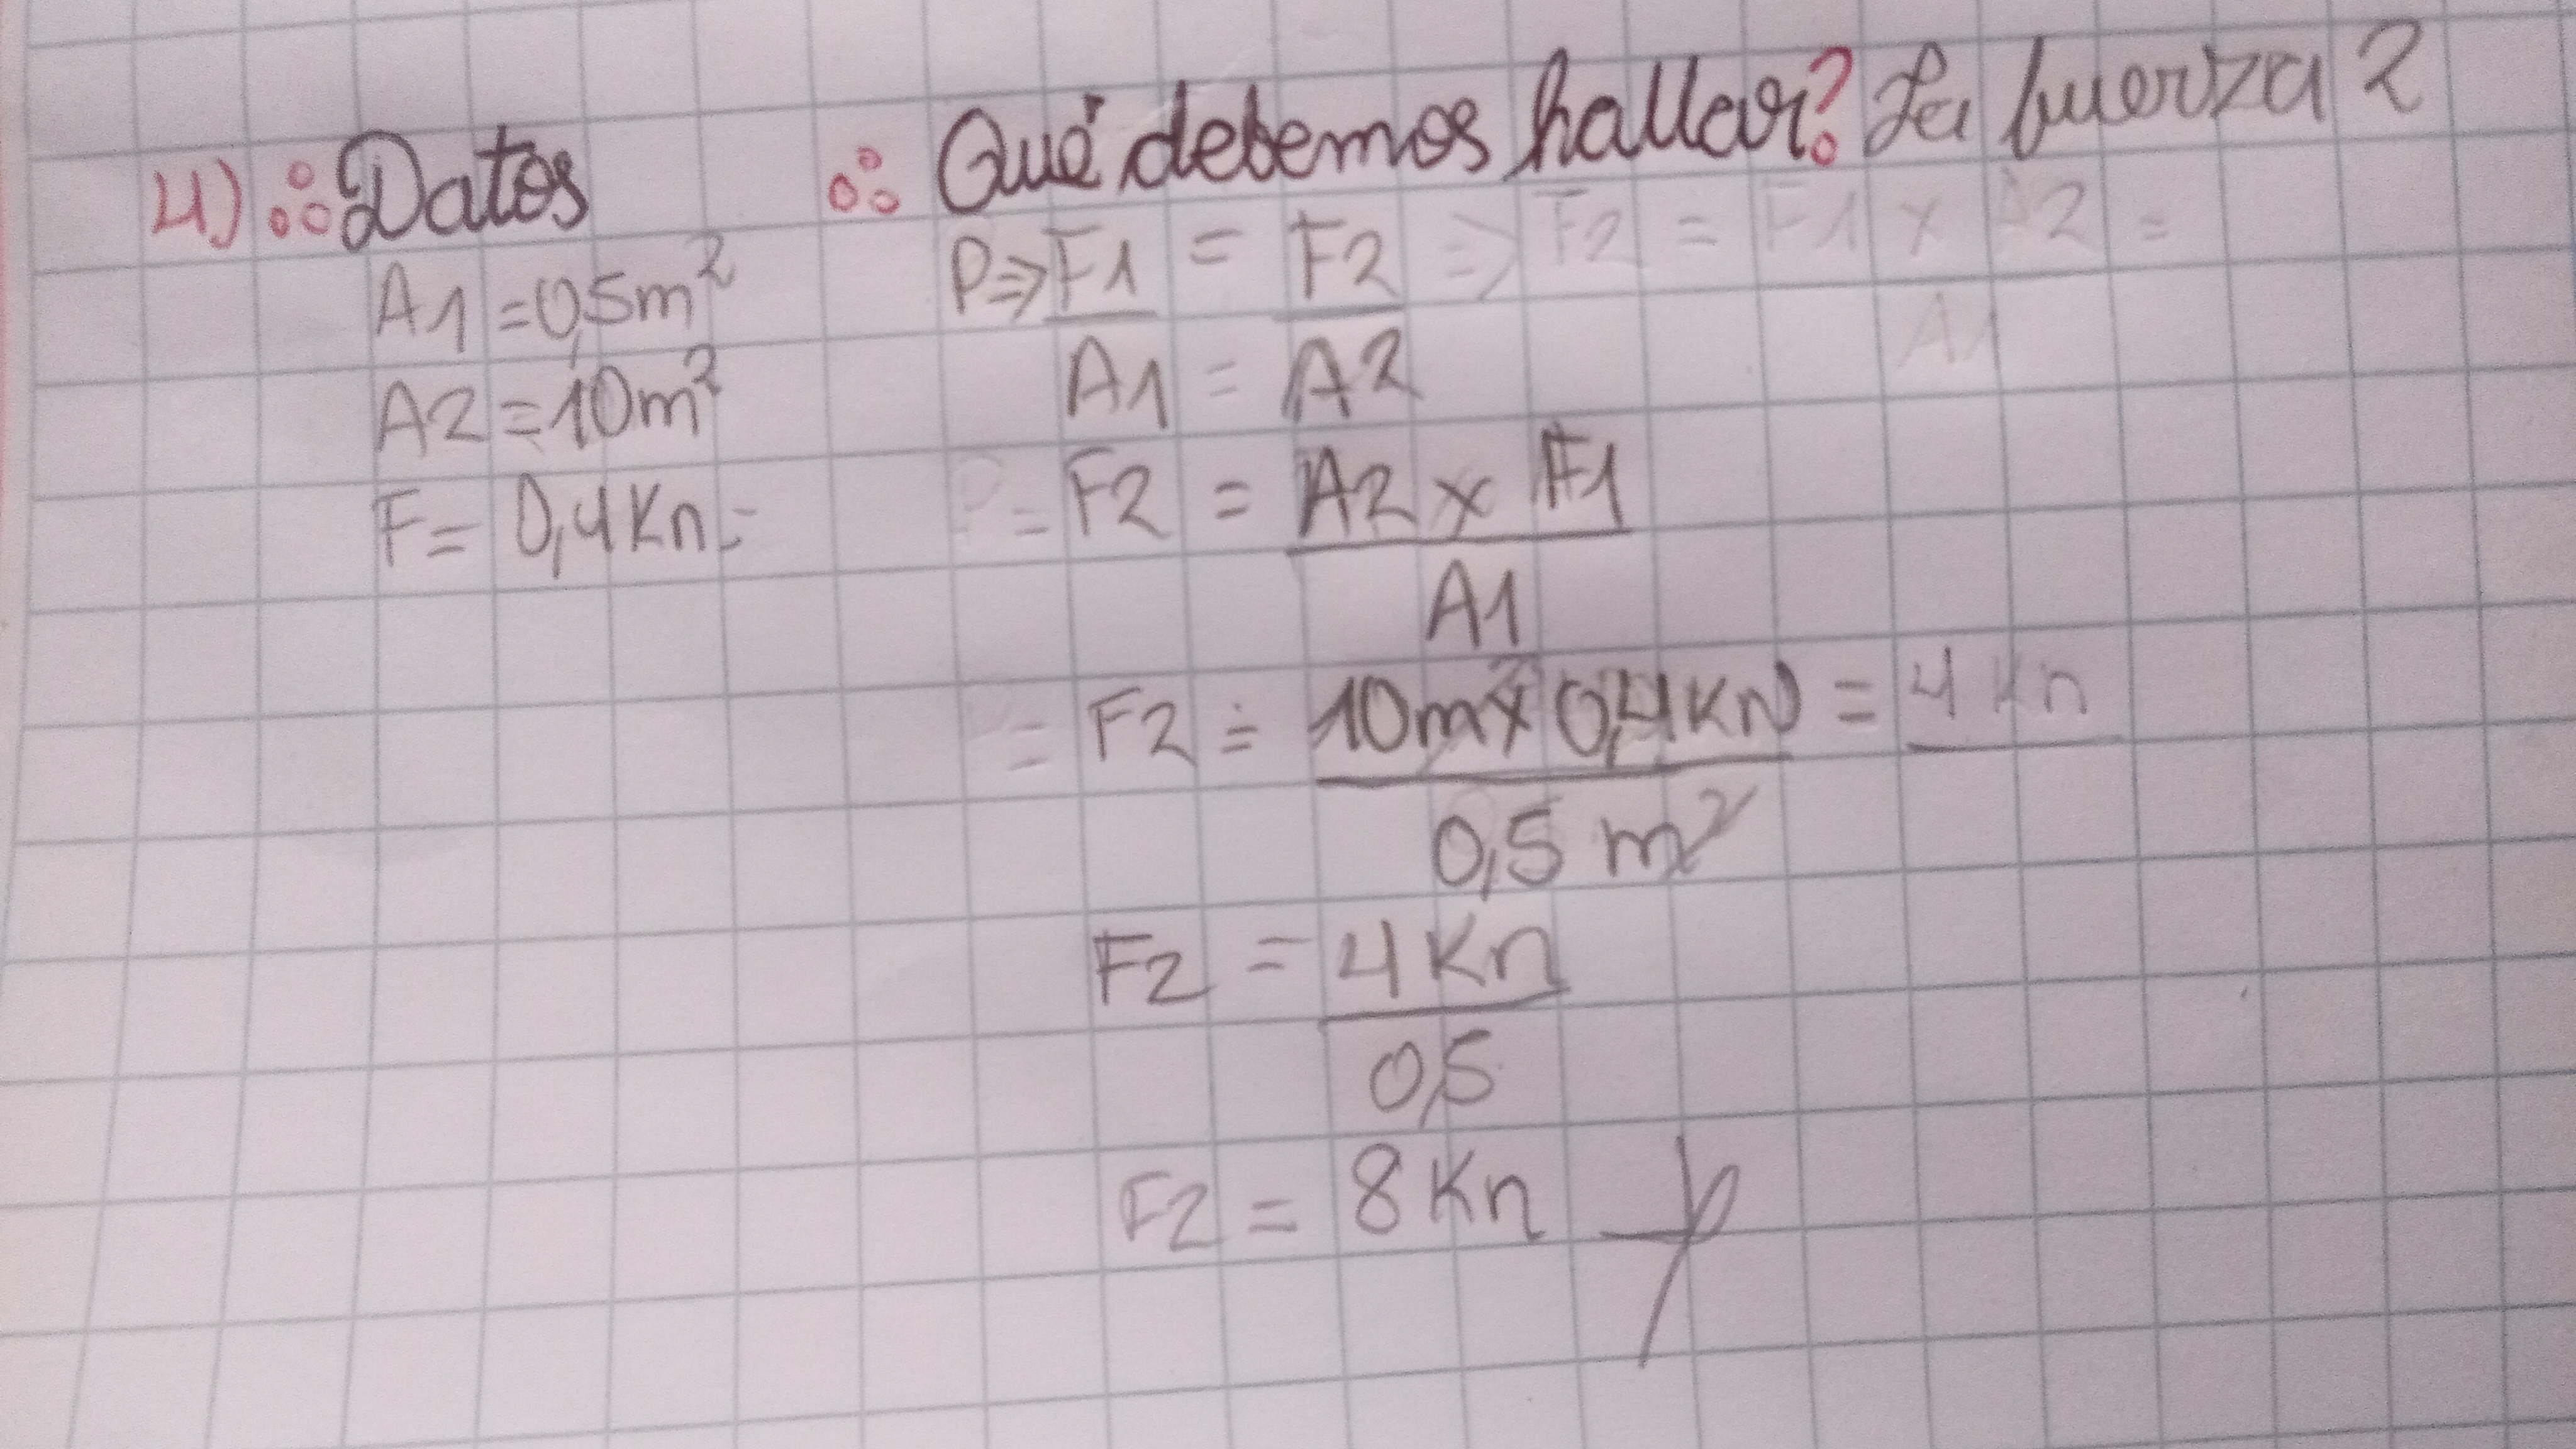 4) Datos
A1 = 0,5m²
A2 = 10m²
F = 0,4Kn =
Qué debemos hallar? La fuerza 2
P ⇒ F1 = F2 ⇒ F2 = F1 x A2 =
A1 = A2 A1
P = F2 = A2 x F1
A1
= F2 = 10m² x 0,4KN = 4 Kn
0,5 m²
F2 = 4 Kn
0,5
F2 = 8 Kn